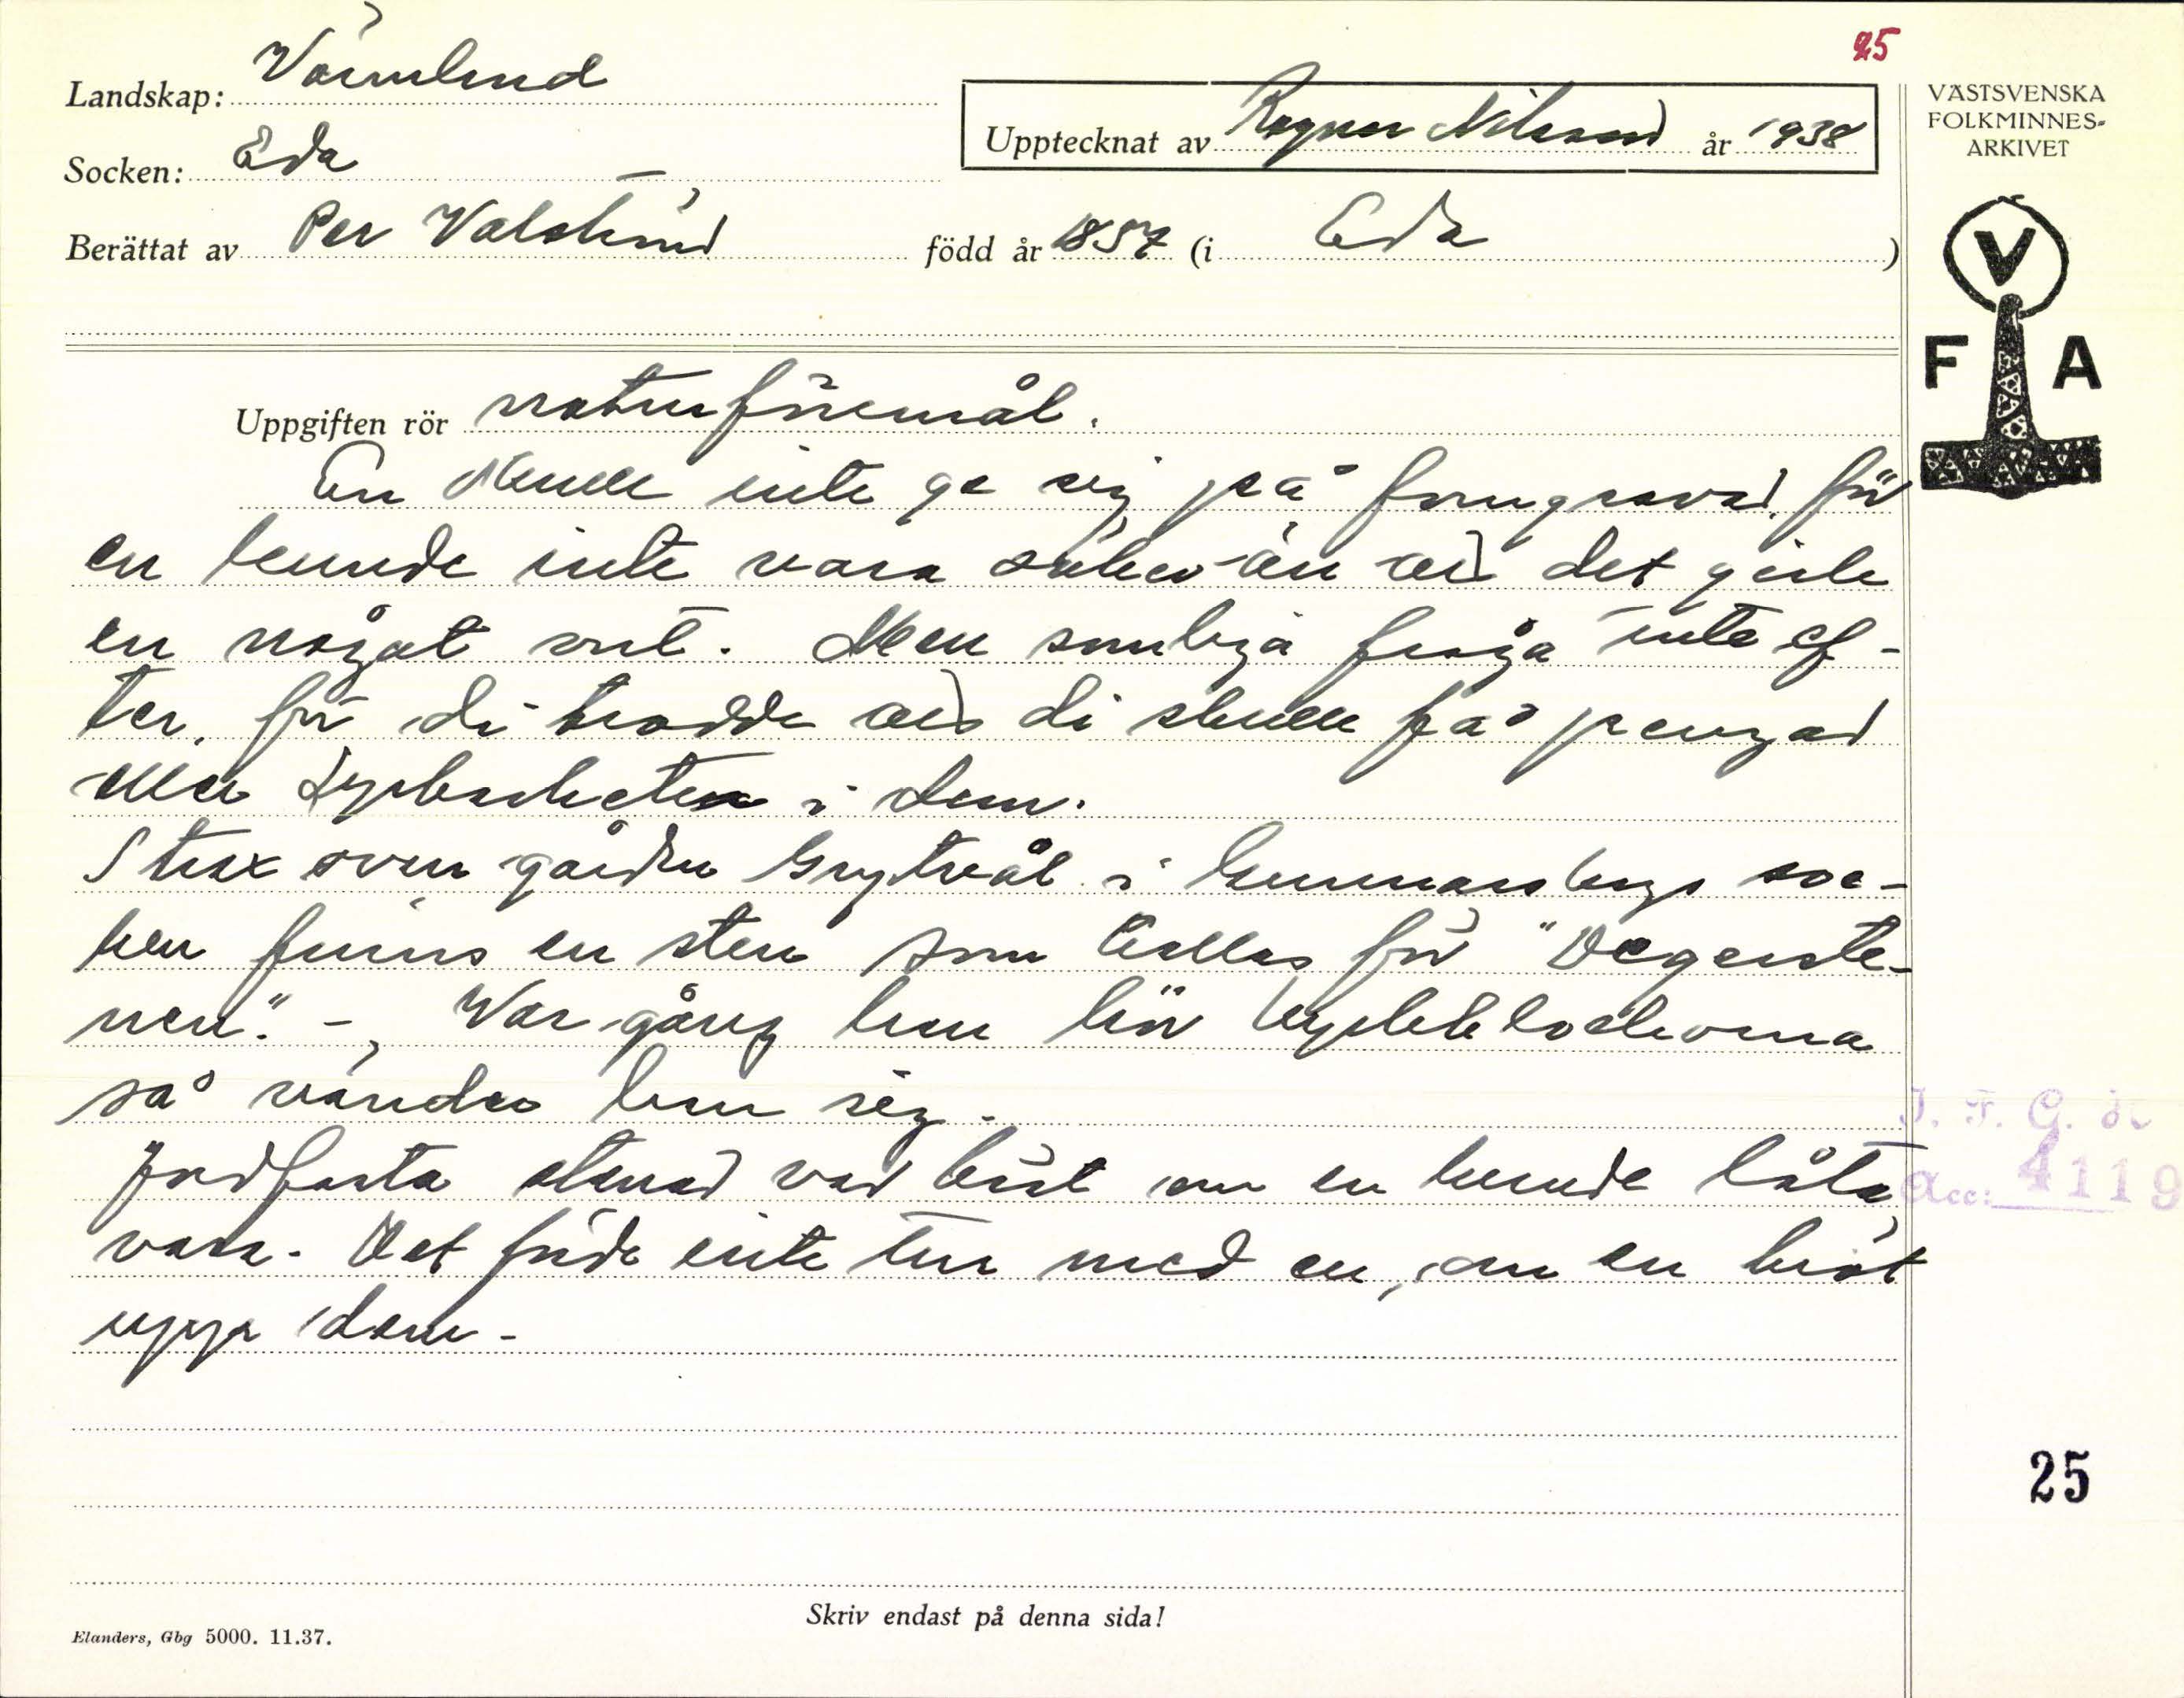 25
Landskap: Värmland
Upptecknat av Ragnar Nilsson år 1938
VÄSTSVENSKA
FOLKMINNES-
ARKIVET
Socken: Eda
Berättat av Per född år 1857 (i Eda)
V
F A
Uppgiften rör naturföremål.
En skulle inte ge sig på forngravar, för
en kunde inte vara säker än att det gick
en något ont. Men somliga fråga inte ef-
ter, för di trodde att di skulle få pengar
eller dyrbarheter i dem.
Strax ovan gården i Gunnarskogs soc-
ken finns en sten som kallas för
nen". - Var gång han hör kyrkklockorna
så vänder han sig.
Jordfasta stenar var bäst om en kunde låta
vara. Det förde inte tur med en, om en bröt
upp dem-
J. F. G. 
Acc: 4119
25
Skriv endast på denna sida!
Elanders, Gbg 5000. 11.37.